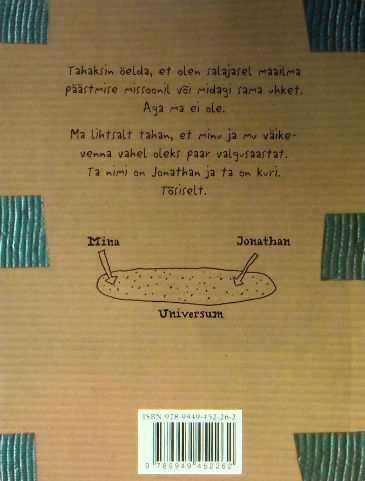 Tahaksin öelda, et olen salajasel maailma
päästmise missoonil või midagi sama uhket.
Aga ma ei ole.
Ma lihtsalt tahan, et minu ja mu väike-
venna vahel oleks paar valgusaastat.
Ta nimi on Jonathan ja ta on kuri.
Tõsiselt.
Mina
Jonathan
Universum
ISBN 978-9949-452-26-2
9 789949 452262